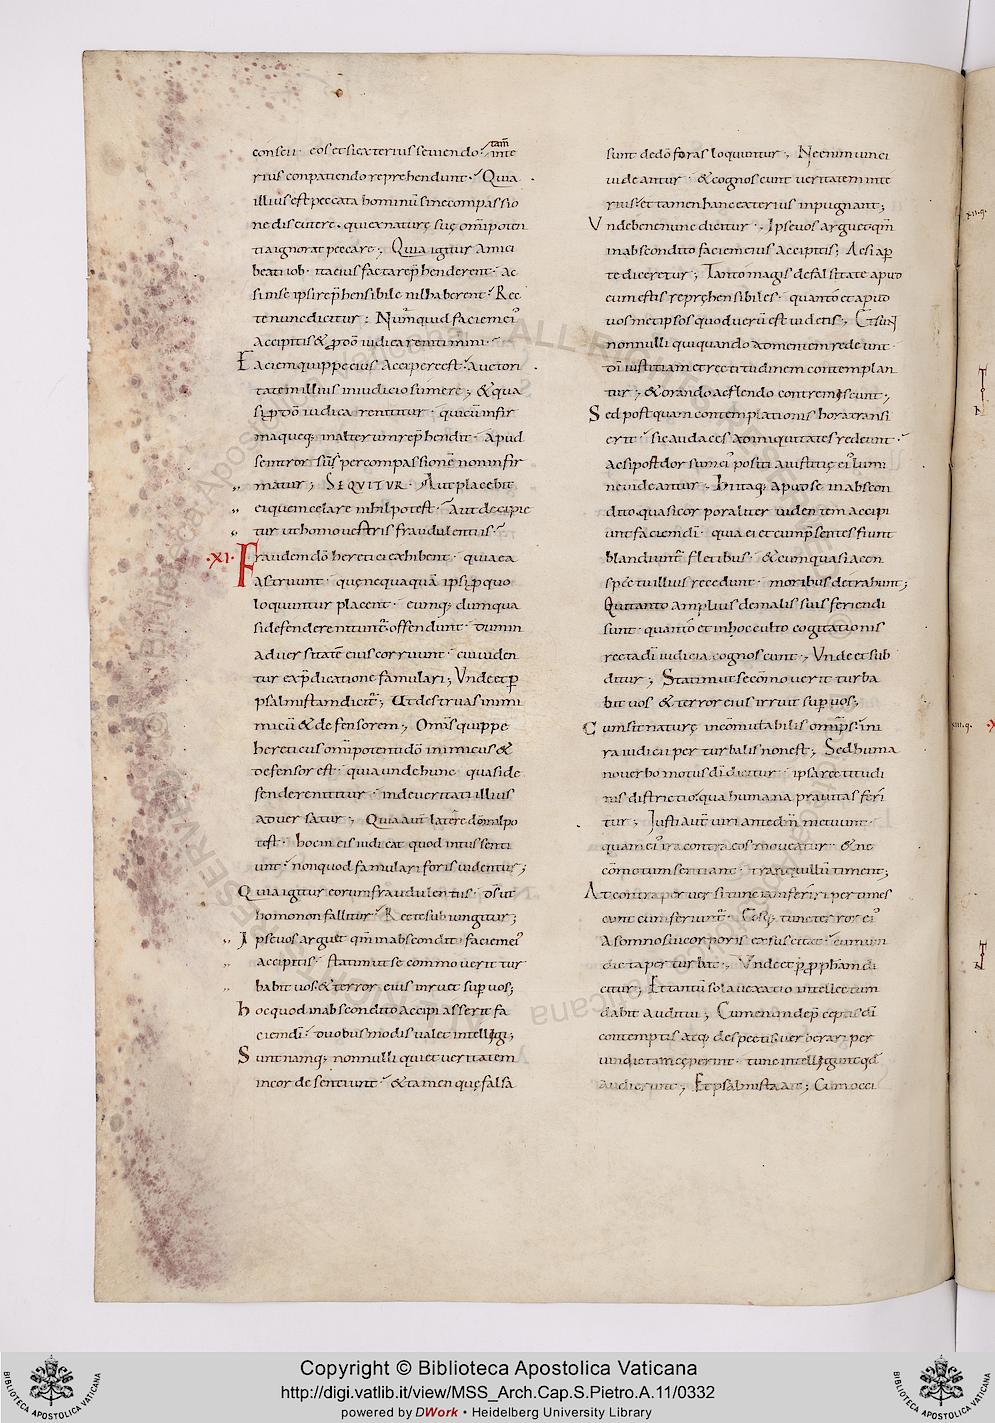 conseii · eos etsi exterius seviendo · tam̄ inte
rius conpatiendo reprehendunt · Quia
illius est peccata hominū sine compassio
ne discutere · qui ex naturę suę om̄ipoten
tia ignorat peccare ; Quia igitur amici
beati iob · ita eius facta rep̄henderent · ac
si in se ipsi rep̄hensibile nil haberent · Rec
te nunc dicitur : Nūmquid faciem ei᾽
accipitis & ꝓ dō iudicare nitimini ·
Faciem quippe eius accipere est · auctori
tatem illius in iudicio sumere ; & qua
si ꝓ dō iudicare nititur · qui cū infir
ma queq; in alterum rep̄hendit · apud
semt ror sūs per compassionē non infir
matur ; SEQUITUR · Aut placebit
ei quem celare nihil potest · Aut decipie
tur ut homo vestris fraudulentiis ·
·XI· Fraudem dō heretici exhibent · quia ea
astruunt · quę nequaquā ipsi ꝓ quo
loquuntur placent · eumq; dum qua
si defendere nitunt᾽ · offendunt · dum in
adversitatem eius corruunt · cui viden
tur ex p̄dicatione famulari ; Unde et p̱
psalmistam dicit᾽ ; Ut destruas inimi
micū & defensorem ; Om̄is quippe
hereticus om̄ipotenti dō inimicus &
defensor est · quia unde hunc quasi de
fendere nititur · inde veritati illius
adversatur ; Quia aut̄ latere dō nil po
test · hoc in eis iudicat quod intus senti
unt · non quod famulari foris videntur ;
Quia igitur eorum fraudulentiis · ds̄ ut
homo non fallitur · Recte subiungitur ;
Ipse vos arguet qm̄ in abscondito faciem ei᾽
accipitis · statim ut se commoverit tur
babit vos · & terror eius irruet sup̱ vos ;
Hoc quod in abscondito accipi asserit fa
ciem dī · duobus modis valet intelligi ;
Sunt namq; nonnulli qui et veritatem
in corde sentiunt · & tamen quę falsa
sunt de dō foras loquuntur ; Ne enim vinci
videantur · & cognoscunt veritatem inte
rius · et tamen hanc exterius inpugnant ;
Unde bene nunc dicitur · Ipse vos arguet · qm̄
in abscondito faciem eius accipitis ; Ac si ap̱
te diceretur ; Tanto magis de falsitate apud
eum estis repręhensibiles · quanto et apud
vosmetipsos quod verū est videtis ; Et sunt
nonnulli qui quando ad mentem redeunt ·
dī iustitiam et rectitudinem contemplan
tur ; & orando ac flendo contremiscunt ;
Sed postquam contemplationis hora transi
erit · sic audaces ad iniquitates redeunt ·
ac si post dorsum ei᾽ positi a iustitię ei᾽ lumi
ne videantur · Hi itaq; apud se in abscon
dito quasi corporaliter videntem accipi
unt faciem dī · quia ei et cum p̄sentes fiunt
blandiunt᾽ fletibus · & cum quasi a con
spectu illius recedunt · moribus detrahunt ;
Qui tanto amplius de malis suis feriendi
sunt · quanto et in hoc culto cogitationis
recta dī iudicia cognoscunt ; Unde et sub
ditur ; Statim ut se cōmoverit turba
bit vos & terror eius irruit sup̱ vos ;
Cum sit naturę incōmutabilis om̄ps · in i
ra iudicii perturbalis non est ; Sed huma
no verbo motus dī dicitur · ipsa rectitudi
nis districtio · qua humana pravitas feri
tur ; Iusti aut̄ viri ante dm̄ metuunt ·
quam ei᾽ ira contra eos moveatur · & ne
cōmotum sentiant · tranquillū timent ;
At contra perversi tunc iam feriri pertimes
cunt cum feriunt᾽ · Eosq; tunc terror ei᾽
a somno sui corporis exsuscitat · cum vin
dicta perturbat ; Unde et p̱ ꝓpham di
citur ; Et tantū sola vexatio intellectum
dabit auditui ; Cum enim de p̄ceptis dī
contemptis atq; despectis · verberari per
vindictam cęperint · tunc intelligunt qd̄
audierunt ; Et psalmista ait ; Cum occi
Copyright © Biblioteca Apostolica Vaticana
http://digi.vatlib.it/view/MSS_Arch.Cap.S.Pietro.A.11/0332
powered by DWork • Heidelberg University Library